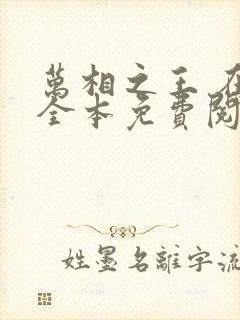 萬相之王
全本免費閱
姓墨名離字流